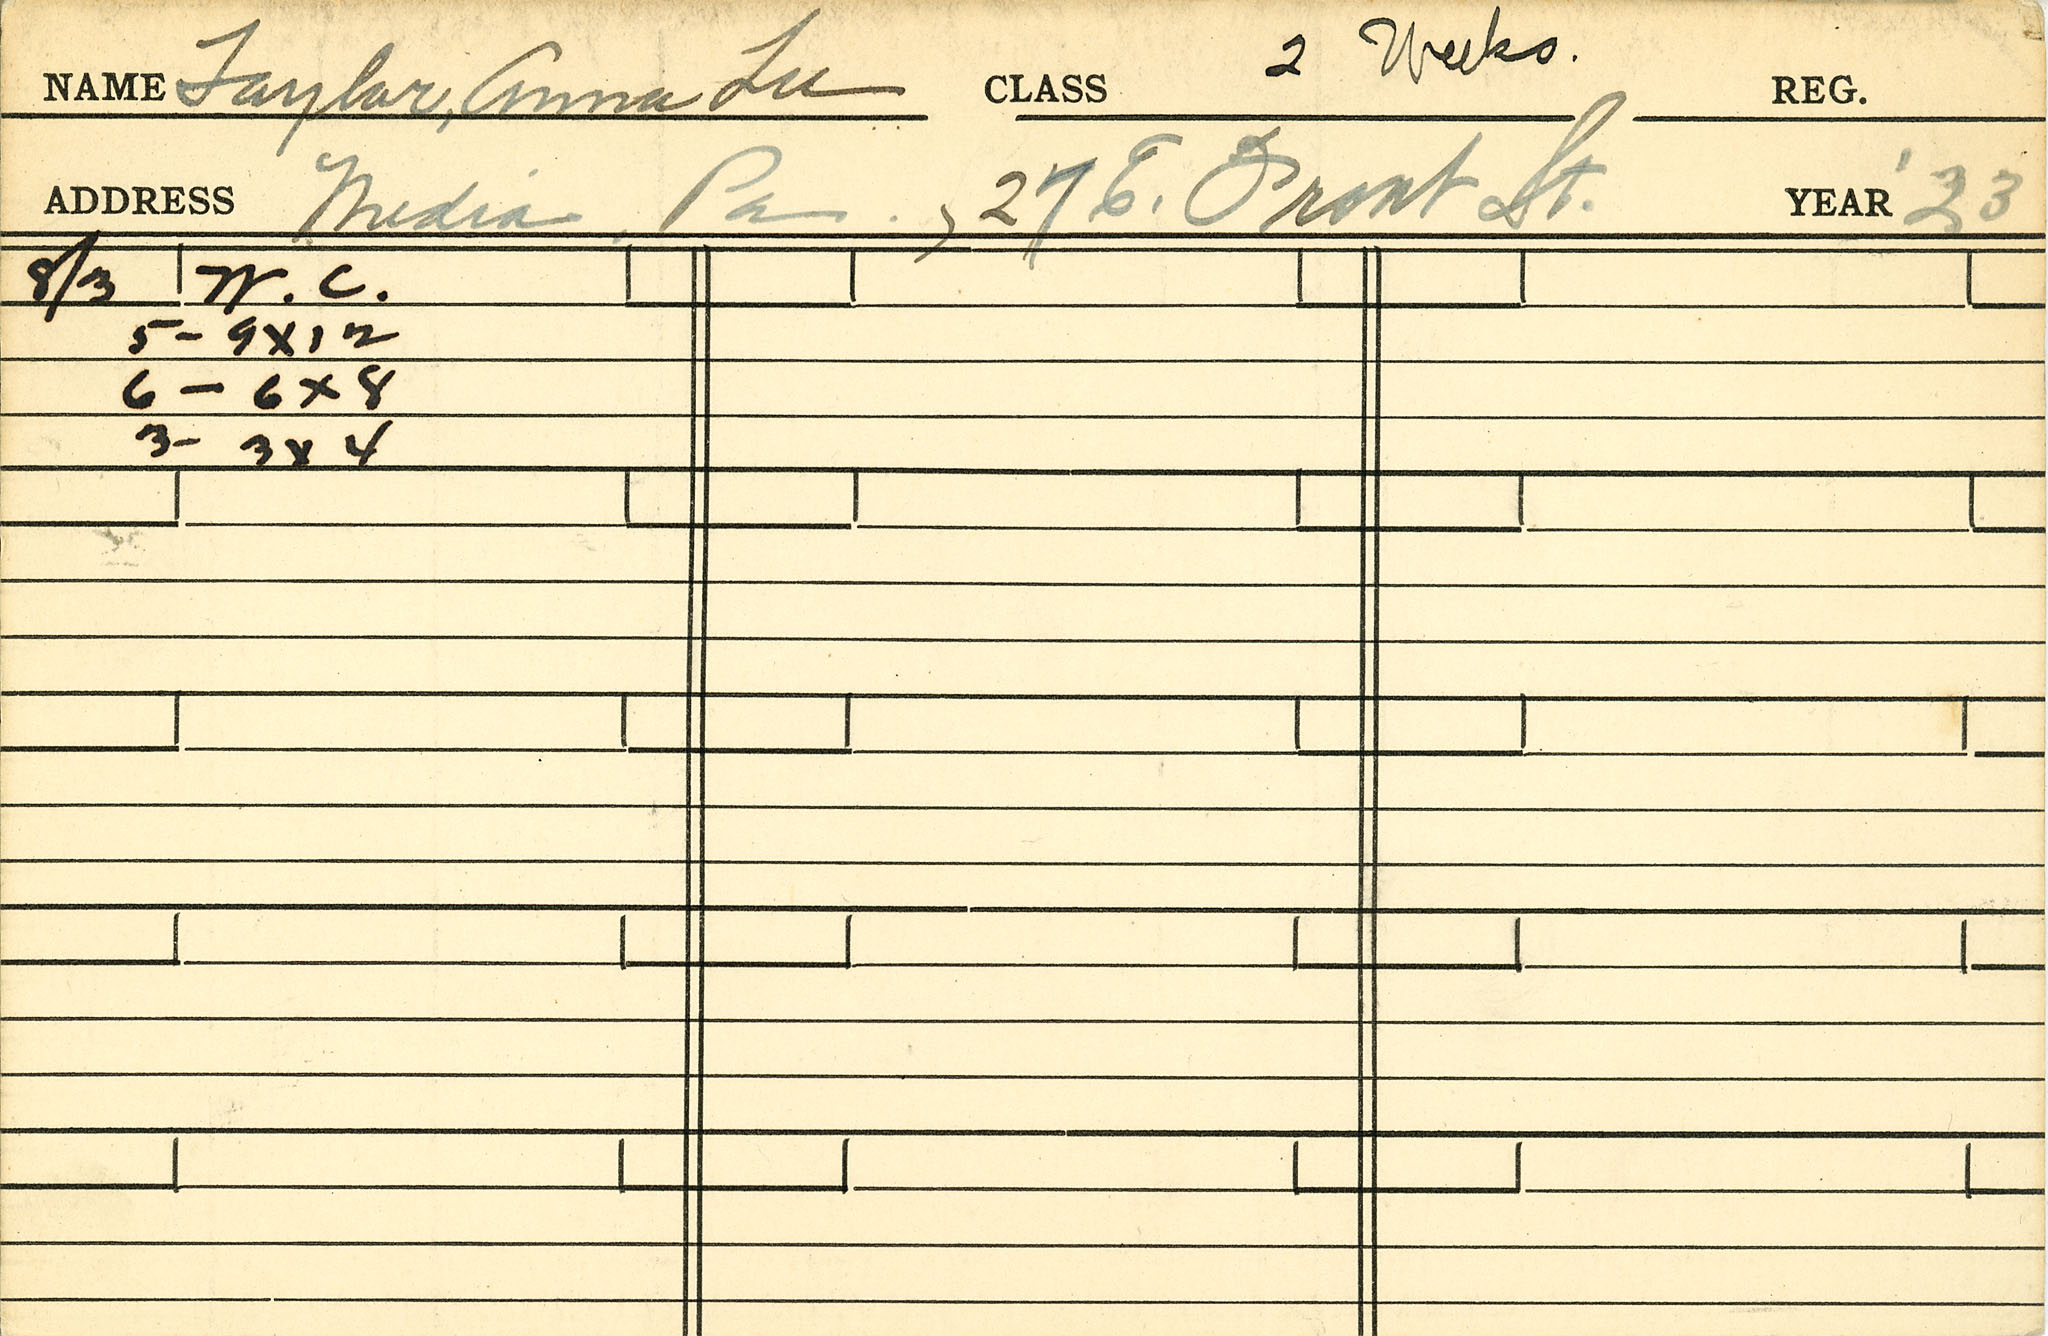 NAME Taylor, Anna Lee CLASS 2 Weeks. REG.
ADDRESS Media, Pa., 27 E. Front St. YEAR '33
8/3 W. C.
5 - 9 x 12
6 - 6 x 8
3 - 3 x 4